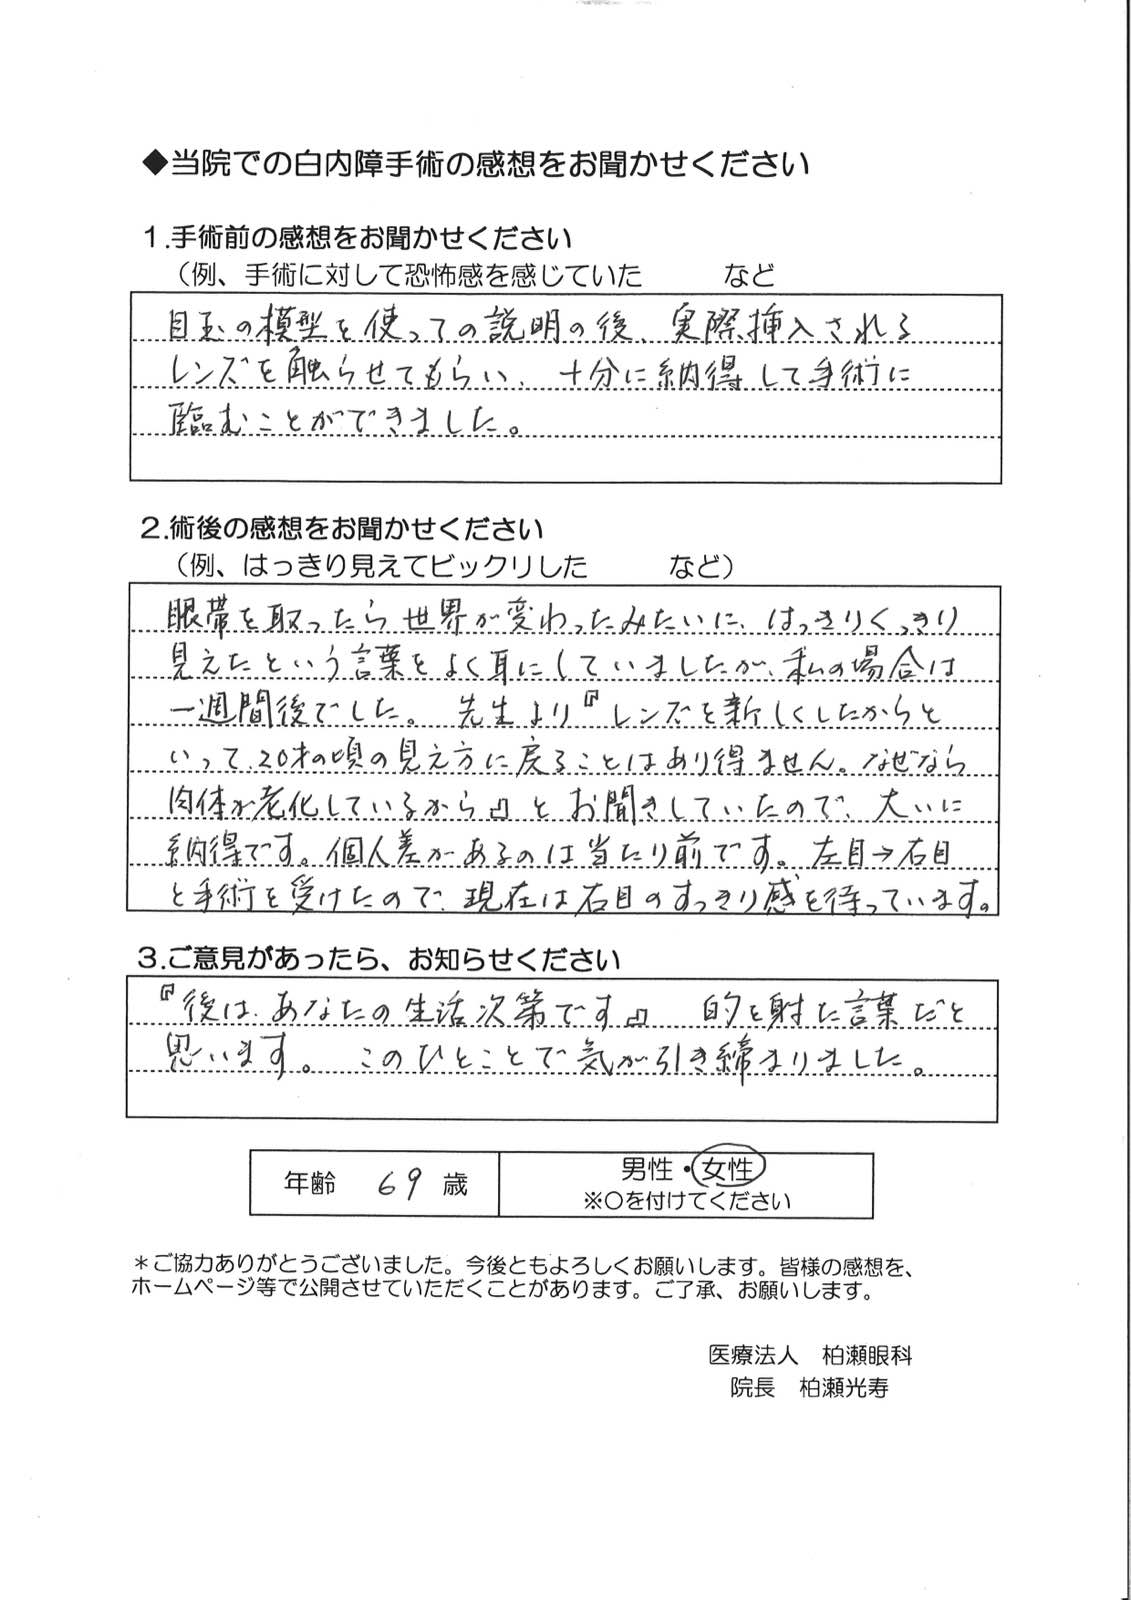 ◆当院での白内障手術の感想をお聞かせください
１.手術前の感想をお聞かせください
（例、手術に対して恐怖感を感じていた　　　など
目玉の模型を使っての説明の後、実際挿入される
レンズを触らせてもらい、十分に納得して手術に
臨むことができました。
２.術後の感想をお聞かせください
（例、はっきり見えてビックリした　　　など）
眼帯を取ったら世界が変わったみたいに、はっきりくっきり
見えたという言葉をよく耳にしていましたが、私の場合は
一週間後でした。先生より『レンズを新しくしたからと
いって、20才の頃の見え方に戻ることはあり得ません。なぜなら
肉体が老化しているから』とお聞きしていたので、大いに
納得です。個人差があるのは当たり前です。左目→右目
と手術を受けたので、現在は右目のすっきり感を待っています。
３.ご意見があったら、お知らせください
『後は、あなたの生活次第です』　的を射た言葉だと
思います。このひとことで気が引き締まりました。
年齢　69　歳
男性・女性
※○を付けてください
＊ご協力ありがとうございました。今後ともよろしくお願いします。皆様の感想を、
ホームページ等で公開させていただくことがあります。ご了承、お願いします。
医療法人　柏瀬眼科
院長　柏瀬光寿